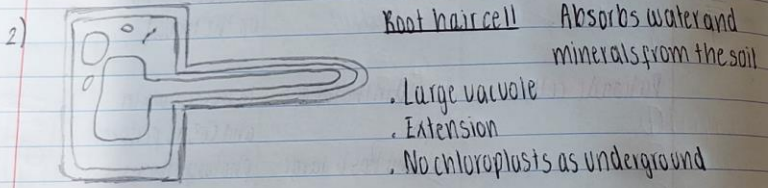 2)
Root hair cell Absorbs water and
minerals from the soil
. Large vacuole
. Extension
. No chloroplasts as underground